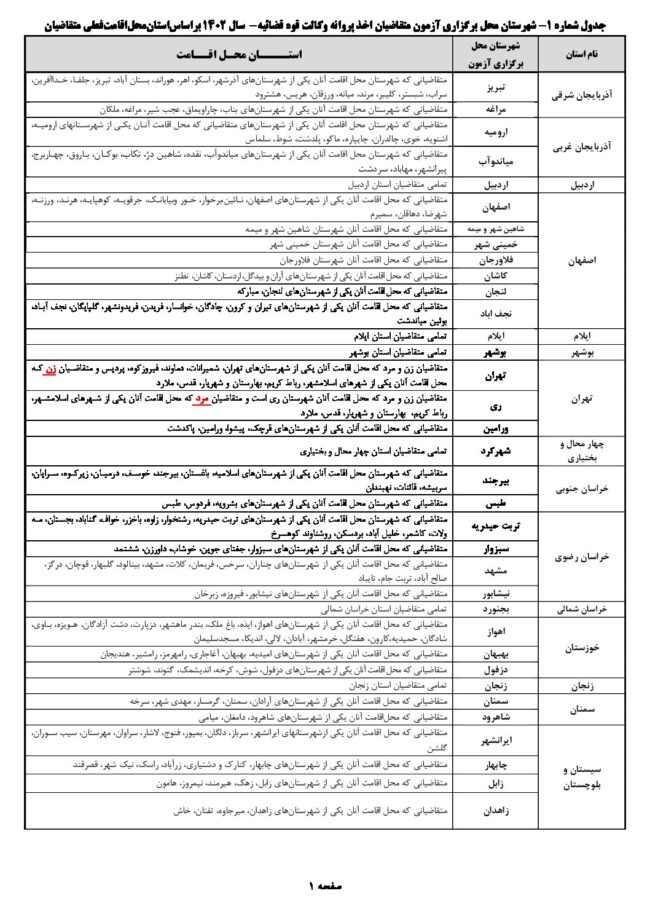 جدول شماره ۱- شهرستان محل برگزاری آزمون متقاضیان اخذ پروانه وکالت قوه قضائیه- سال ۱۴۰۲ براساس‌استان‌محل‌اقامت‌فعلی متقاضیان
نام استان
شهرستان محل
برگزاری آزمون
استـــــــان محـل اقـامـت
آذربایجان شرقی
تبریز
متقاضیانی که شهرستان محل اقامت آنان یکی از شهرستان‌های آذرشهر، اسکو، اهر، هوراند، بستان آباد، تبریز، جلفـا، خـداآفرین،
سراب، شبستر، کلیبر، مرند، میانه، ورزقان، هریس، هشترود
مراغه
متقاضیانی که محل اقامت آنان یکی از شهرستان‌های بناب، چاراویماق، عجب شیر، مراغه، ملکان
آذربایجان غربی
ارومیه
متقاضیانی که محل اقامت آنان یکی از شهرستان‌های متقاضیانی که محل اقامت آنـان یکـی از شهرسـتانهای ارومیـه،
اشنویه، خوی، چالدران، چایپاره، ماکو، پلدشت، شوط، سلماس
میاندوآب
متقاضیانی که محل اقامت آنان یکی از شهرستان‌های میاندوآب، نقده، شاهین دژ، تکاب، بوکـان، بـاروق، چهـاربرج،
پیرانشهر، مهاباد، سردشت
اردبیل
اردبیل
تمامی متقاضیان استان اردبیل
اصفهان
اصفهان
متقاضیانی که محل اقامت آنان یکی از شهرستان‌های اصفهان، نـائین‌،برخوار، خـور وبیابانـک، جرقویـه، کوهپایـه، هرنـد، ورزنـه،
شهرضا، دهاقان، سمیرم
شاهین شهر و میمه
متقاضیانی که محل اقامت آنان شهرستان شاهین شهر و میمه
خمینی شهر
متقاضیانی که محل اقامت آنان شهرستان خمینی شهر
فلاورجان
متقاضیانی که محل اقامت آنان شهرستان فلاورجان
کاشان
متقاضیانی که محل‌اقامت آنان یکی از شهرستان‌های آران‌و‌بیدگل،اردستان، کاشان، نطنز
لنجان
متقاضیانی که محل‌اقامت آنان یکی از شهرستان‌های لنجان، مبارکه
نجف اباد
متقاضیانی که محل اقامت آنان یکی از شهرستان‌های تیران و کرون، چادگان، خوانسار، فریدن، فریدونشهر، گلپایگان، نجف آبـاد،
بوئین میاندشت
ایلام
ایلام
تمامی متقاضیان استان ایلام
بوشهر
بوشهر
تمامی متقاضیان استان بوشهر
تهران
تهران
متقاضیان زن و مرد که محل اقامت آنان یکی از شهرستان‌های تهران، شمیرانات، دماوند، فیروزکوه، پردیس و متقاضـیان زن کـه
محل اقامت آنان یکی از شهرهای اسلامشهر، رباط کریم، بهارستان و شهریار، قدس، ملارد
ری
متقاضیان زن و مرد که محل اقامت آنان شهرستان ری است و متقاضیان مرد که محل اقامت آنان یکی از شـهرهای اسلامشـهر،
رباط کریم، بهارستان و شهریار، قدس، ملارد
ورامین
متقاضیانی که محل اقامت آنان یکی از شهرستان‌های قرچک، پیشوا، ورامین، پاکدشت
چهار محال و
بختیاری
شهرکرد
تمامی متقاضیان استان چهار محال و بختیاری
خراسان جنوبی
بیرجند
متقاضیانی که محل اقامت آنان یکی از شهرستان‌های اسلامیه، باغستان، بیرجند، خوسف، درمیـان، زیرکـوه، سـرایان،
سربیشه، قائنات، نهبندان
طبس
متقاضیانی که شهرستان محل اقامت آنان یکی از شهرستان‌های بشرویه، فردوس، طبس
خراسان رضوی
تربت حیدریه
متقاضیانی که محل اقامت آنان یکی از شهرستان‌های تربت حیدریه، رشتخوار، زاوه، باخزر، خواف، گناباد، بجستان، مـه
ولات، کاشمر، خلیل آباد، بردسکن، روشناوند کوهسرخ
سبزوار
متقاضیانی که محل اقامت آنان یکی از شهرستان‌های سبزوار، جغتای جوین، خوشاب، داورزن، ششتمد
مشهد
متقاضیانی که محل اقامت آنان یکی از شهرستان‌های چناران، سرخس، فریمان، کلات، مشهد، بینالود، گلبهار، قوچان، درگـز،
صالح آباد، تربت جام، تایباد
نیشابور
متقاضیانی که محل اقامت آنان یکی از شهرستان‌های نیشابور، فیروزه، زبرخان
خراسان شمالی
بجنورد
تمامی متقاضیان استان خراسان شمالی
خوزستان
اهواز
متقاضیانی که محل اقامت آنان یکی از شهرستان‌های اهواز، ایذه، باغ ملک، بندر ماهشهر، دزپارت، دشت آزادگان، هـویزه، بـاوی،
شادگان، حمیدیه،کارون، هفتگل، خرمشهر، آبادان، لالی، اندیکا، مسجدسلیمان
بهبهان
متقاضیانی که محل اقامت آنان یکی از شهرستان‌های امیدیه، بهبهان، آغاجاری، رامهرمز، رامشیر، هندیجان
دزفول
متقاضیانی که محل‌اقامت آنان یکی از شهرستان‌های دزفول، شوش، کرخه، اندیشمک، گتوند، شوشتر
زنجان
زنجان
تمامی متقاضیان استان زنجان
سمنان
سمنان
متقاضیانی که محل اقامت آنان یکی از شهرستان‌های آرادان، سمنان، گرمسار، مهدی شهر، سرخه
شاهرود
متقاضیانی که محل‌اقامت آنان یکی از شهرستان‌های شاهرود، دامغان، میامی
سیستان و
بلوچستان
ایرانشهر
متقاضیانی که محل اقامت آنان یکی ازشهرستانهای ایرانشهر، سرباز، دلگان، بمپور، فنوج، لاشار، سراوان، مهرستان، سیب سـوران،
گلشن
چابهار
متقاضیانی که محل اقامت آنان یکی از شهرستان‌های چابهار، کنارک و دشتیاری، زرآباد، راسک، نیک شهر، قصرقند
زابل
متقاضیانی که محل اقامت آنان یکی از شهرستان‌های زابل، زهک، هیرمند، نیمروز، هامون
زاهدان
متقاضیانی که محل اقامت آنان یکی از شهرستان‌های زاهدان، میرجاوه، تفتان، خاش
صفحه ۱